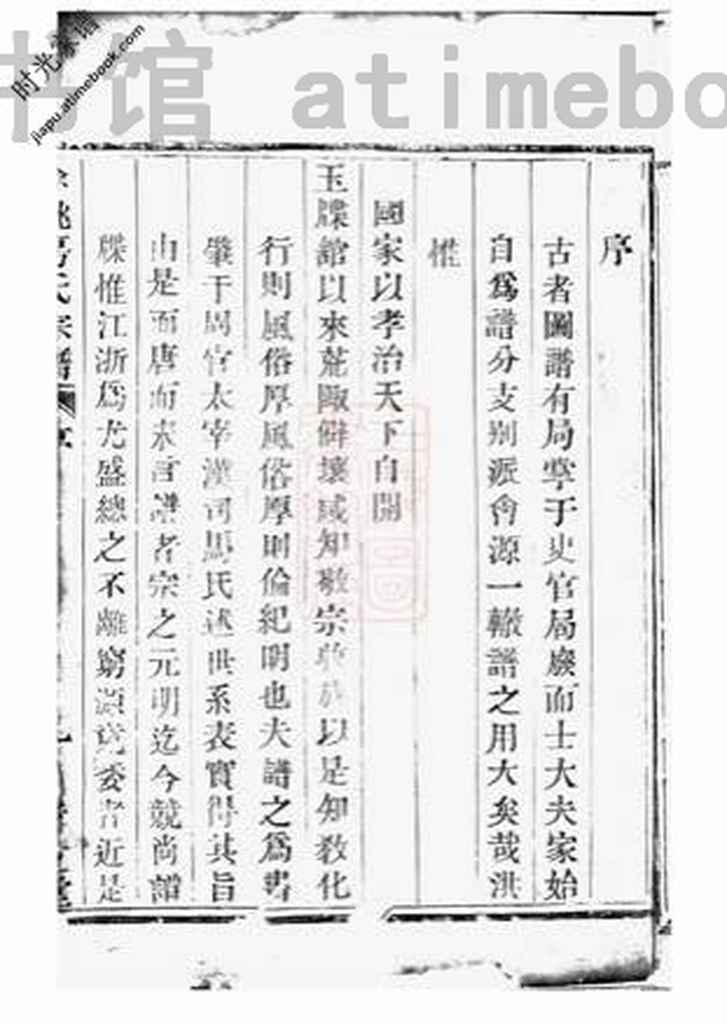 书馆 atimebo
时光家谱
jiapu.atimebook.com
序
古者圖譜有局掌于史官局廢而士大夫家始
自爲譜分支别派會源一轍譜之用大矣哉洪
惟
國家以孝治天下自開
玉牒館以來荒陬僻壤咸知敬宗收族以是知教化
行則風俗厚風俗厚則倫紀明也夫譜之爲書
肇于周官太宰漢司馬氏述世系表實得其旨
由是而唐而宋言譜者宗之元明迄今競尚譜
牒惟江浙爲尤盛總之不離窮源竟委者近是
氏宗譜